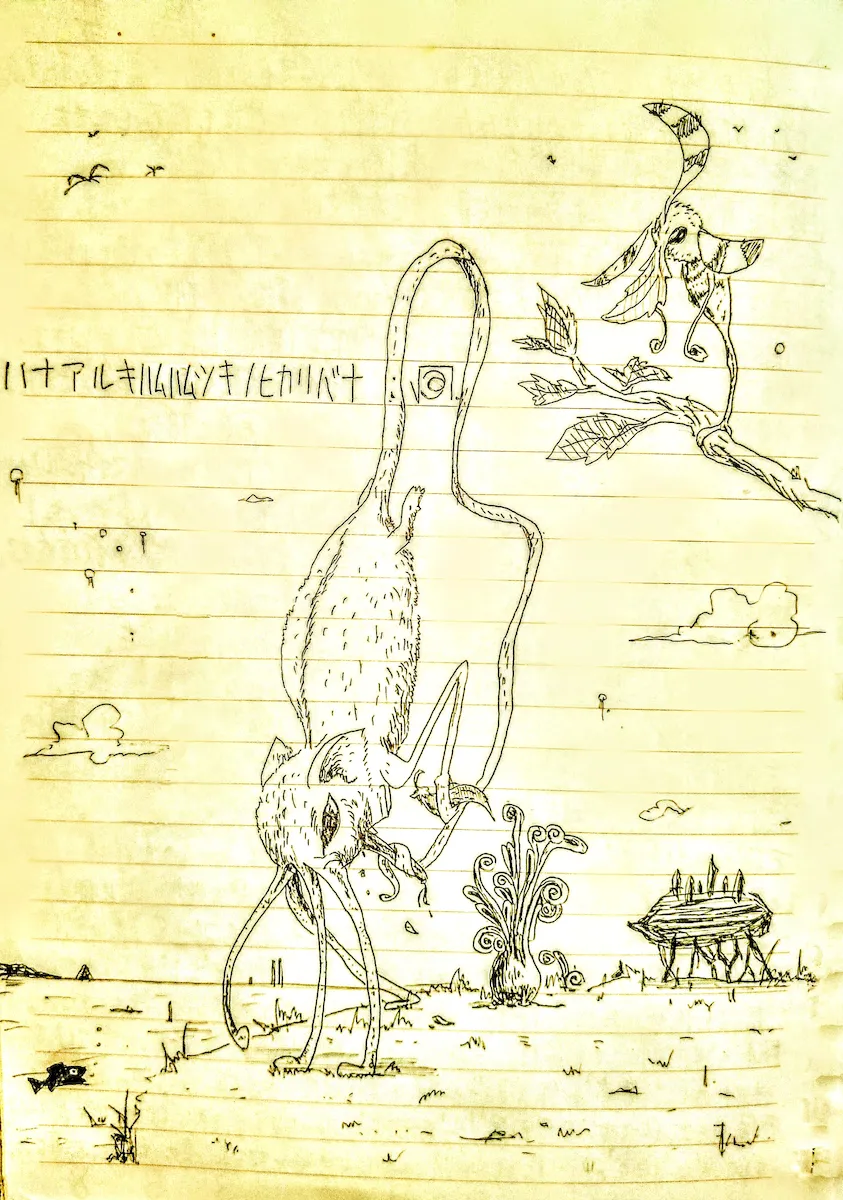 ハナアルキハムハムツキノヒカリバナ